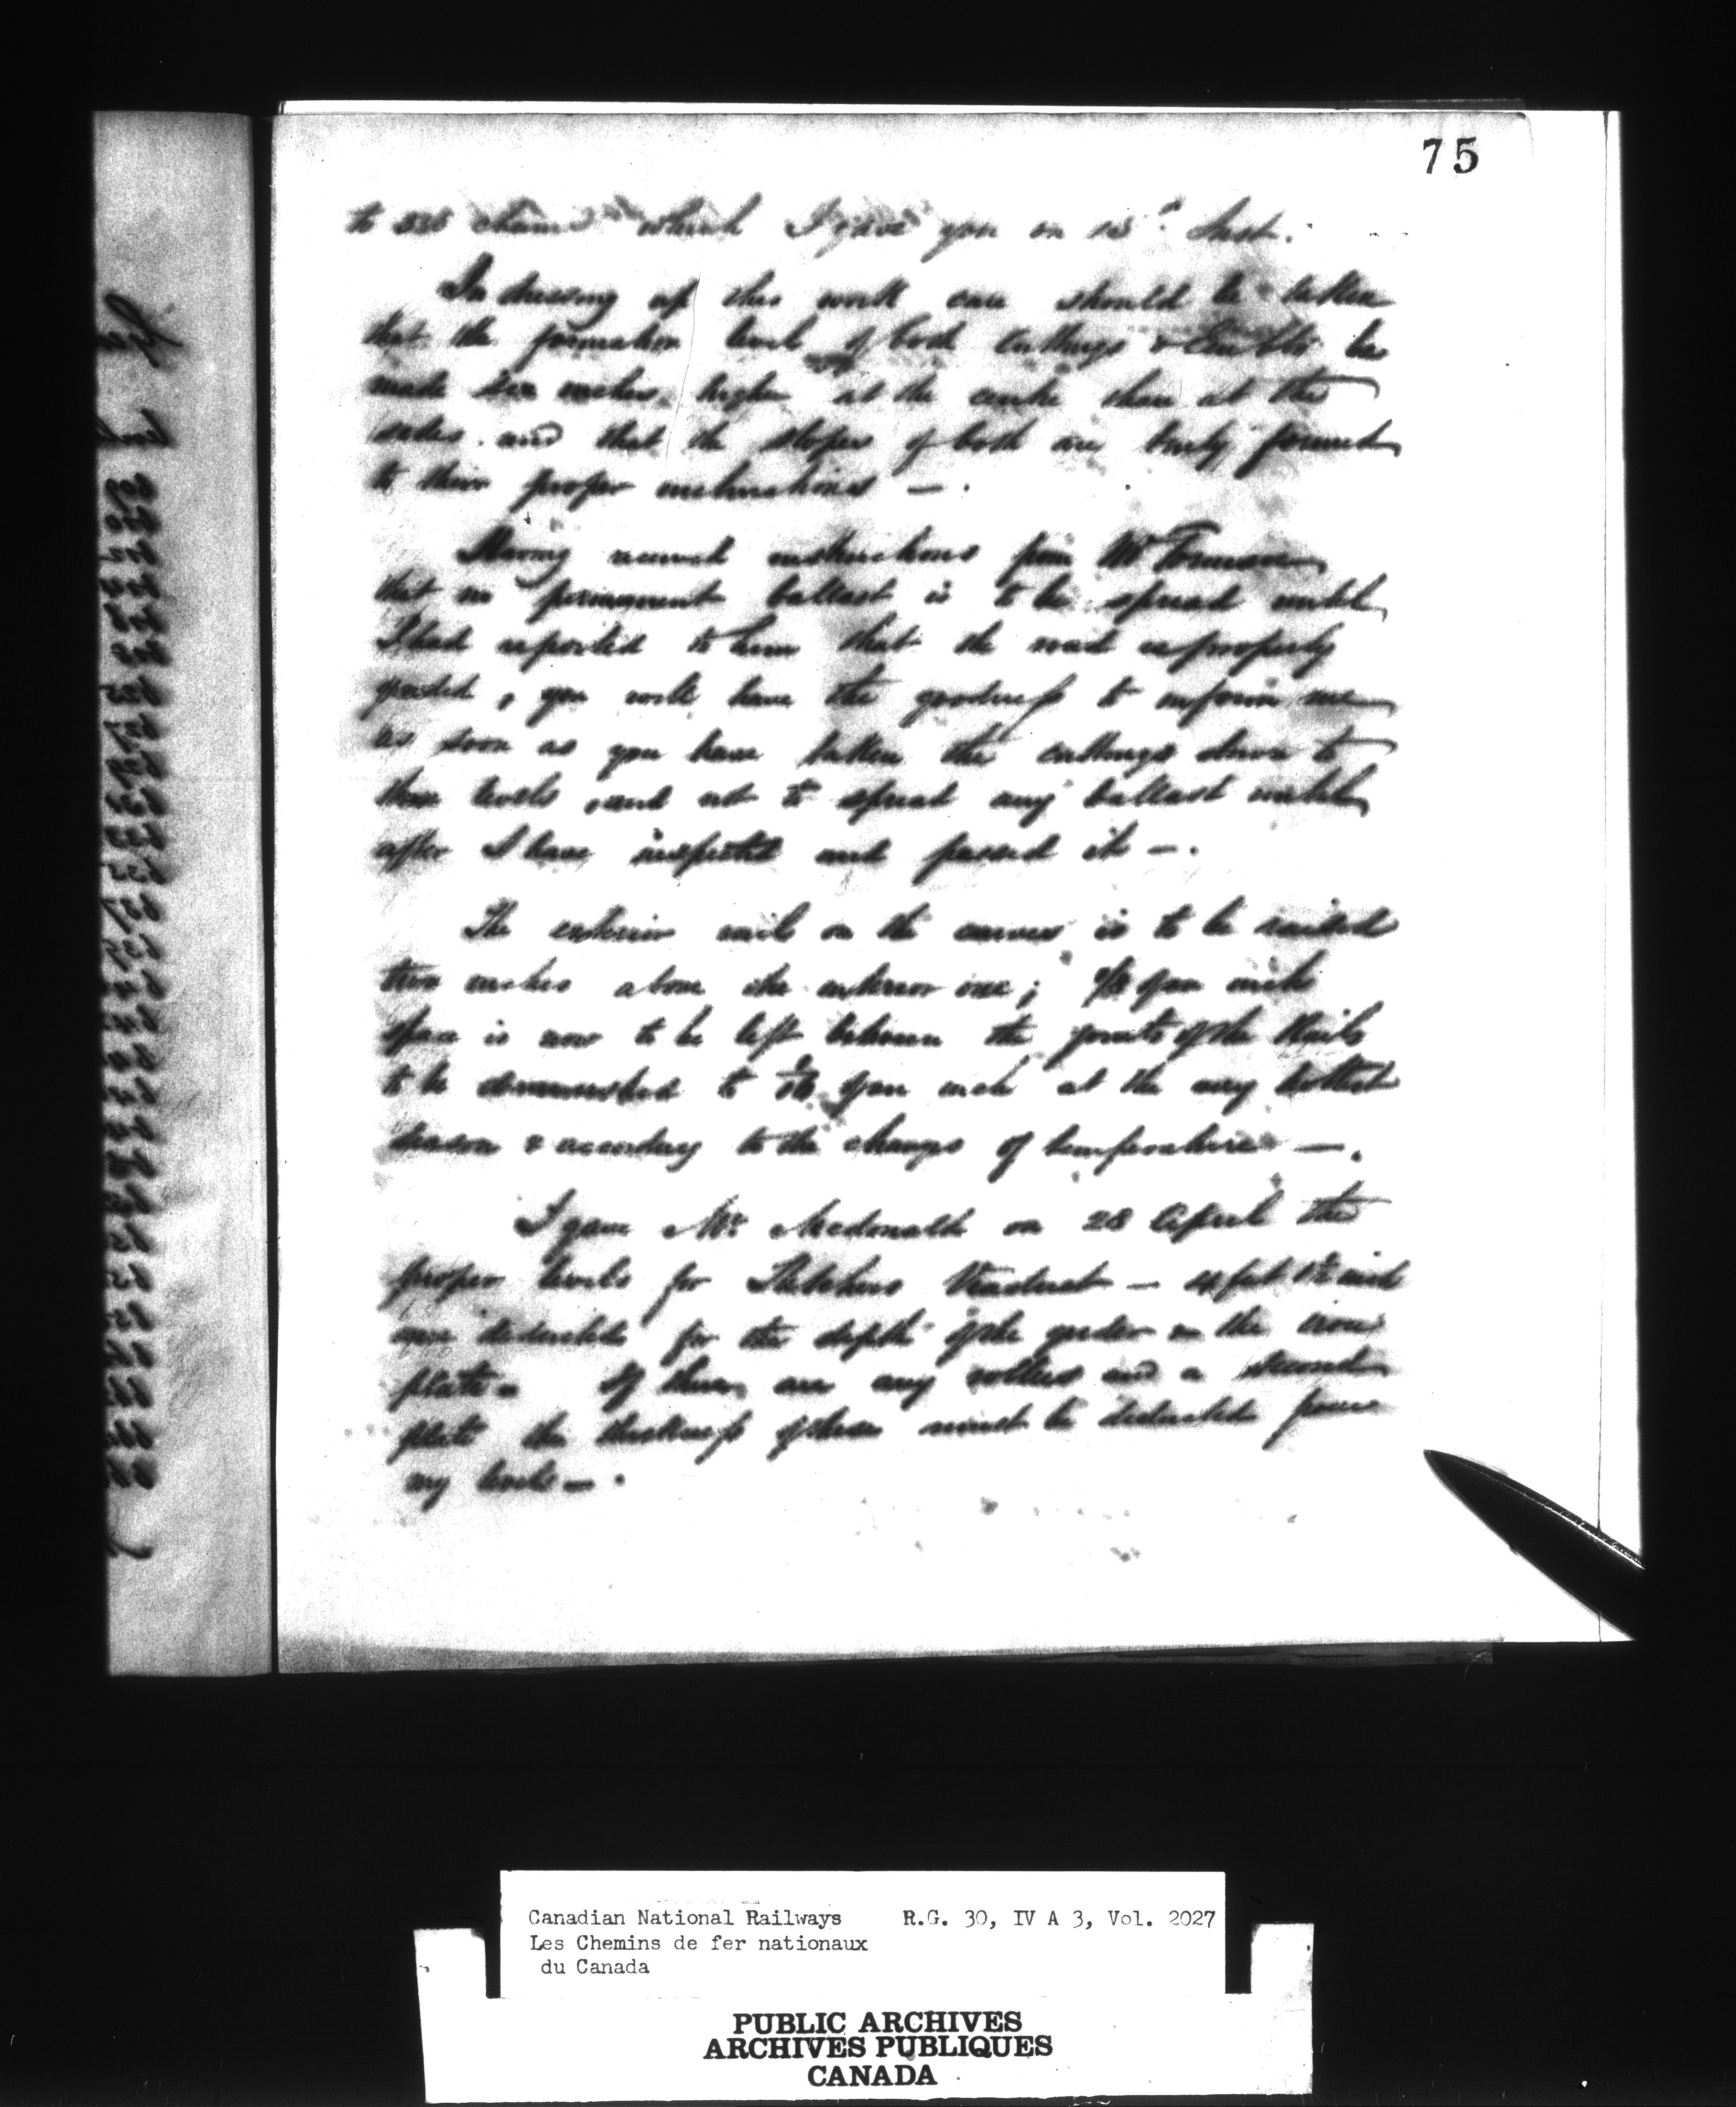 75
to 528 chains which I gave you on 13th Inst.
In dressing up this work care should be taken
that the formation level of both Cuttings & Embkts be
made six inches higher at the centre than at the
sides and that the slopes of both are truly formed
to their proper inclinations —.
Having received instructions from Mr
that no permanent ballast is to be spread until
I had reported to him that the road is properly
graded, you will have the goodness to inform me
as soon as you have taken the cuttings down to
these levels, and not to spread any ballast until
after I have inspected and passed it —.
The exterior rail on the curves is to be raised
two inches above the interior one; of an inch
space is now to be left between the joints of the Rails
to be diminished to of an inch at the very hottest
season & according to the changes of temperature —.
I gave Mr. Mcdonald on 28 April the
proper levels for Viaduct — 4 feet inch
were deducted for the depth of the girder on the iron
plate — If there are any rollers and a second
plate the thickness of these must be deducted from
my levels —.
Canadian National Railways R.G. 30, IV A 3, Vol. 2027
Les Chemins de fer nationaux
du Canada
PUBLIC ARCHIVES
ARCHIVES PUBLIQUES
CANADA